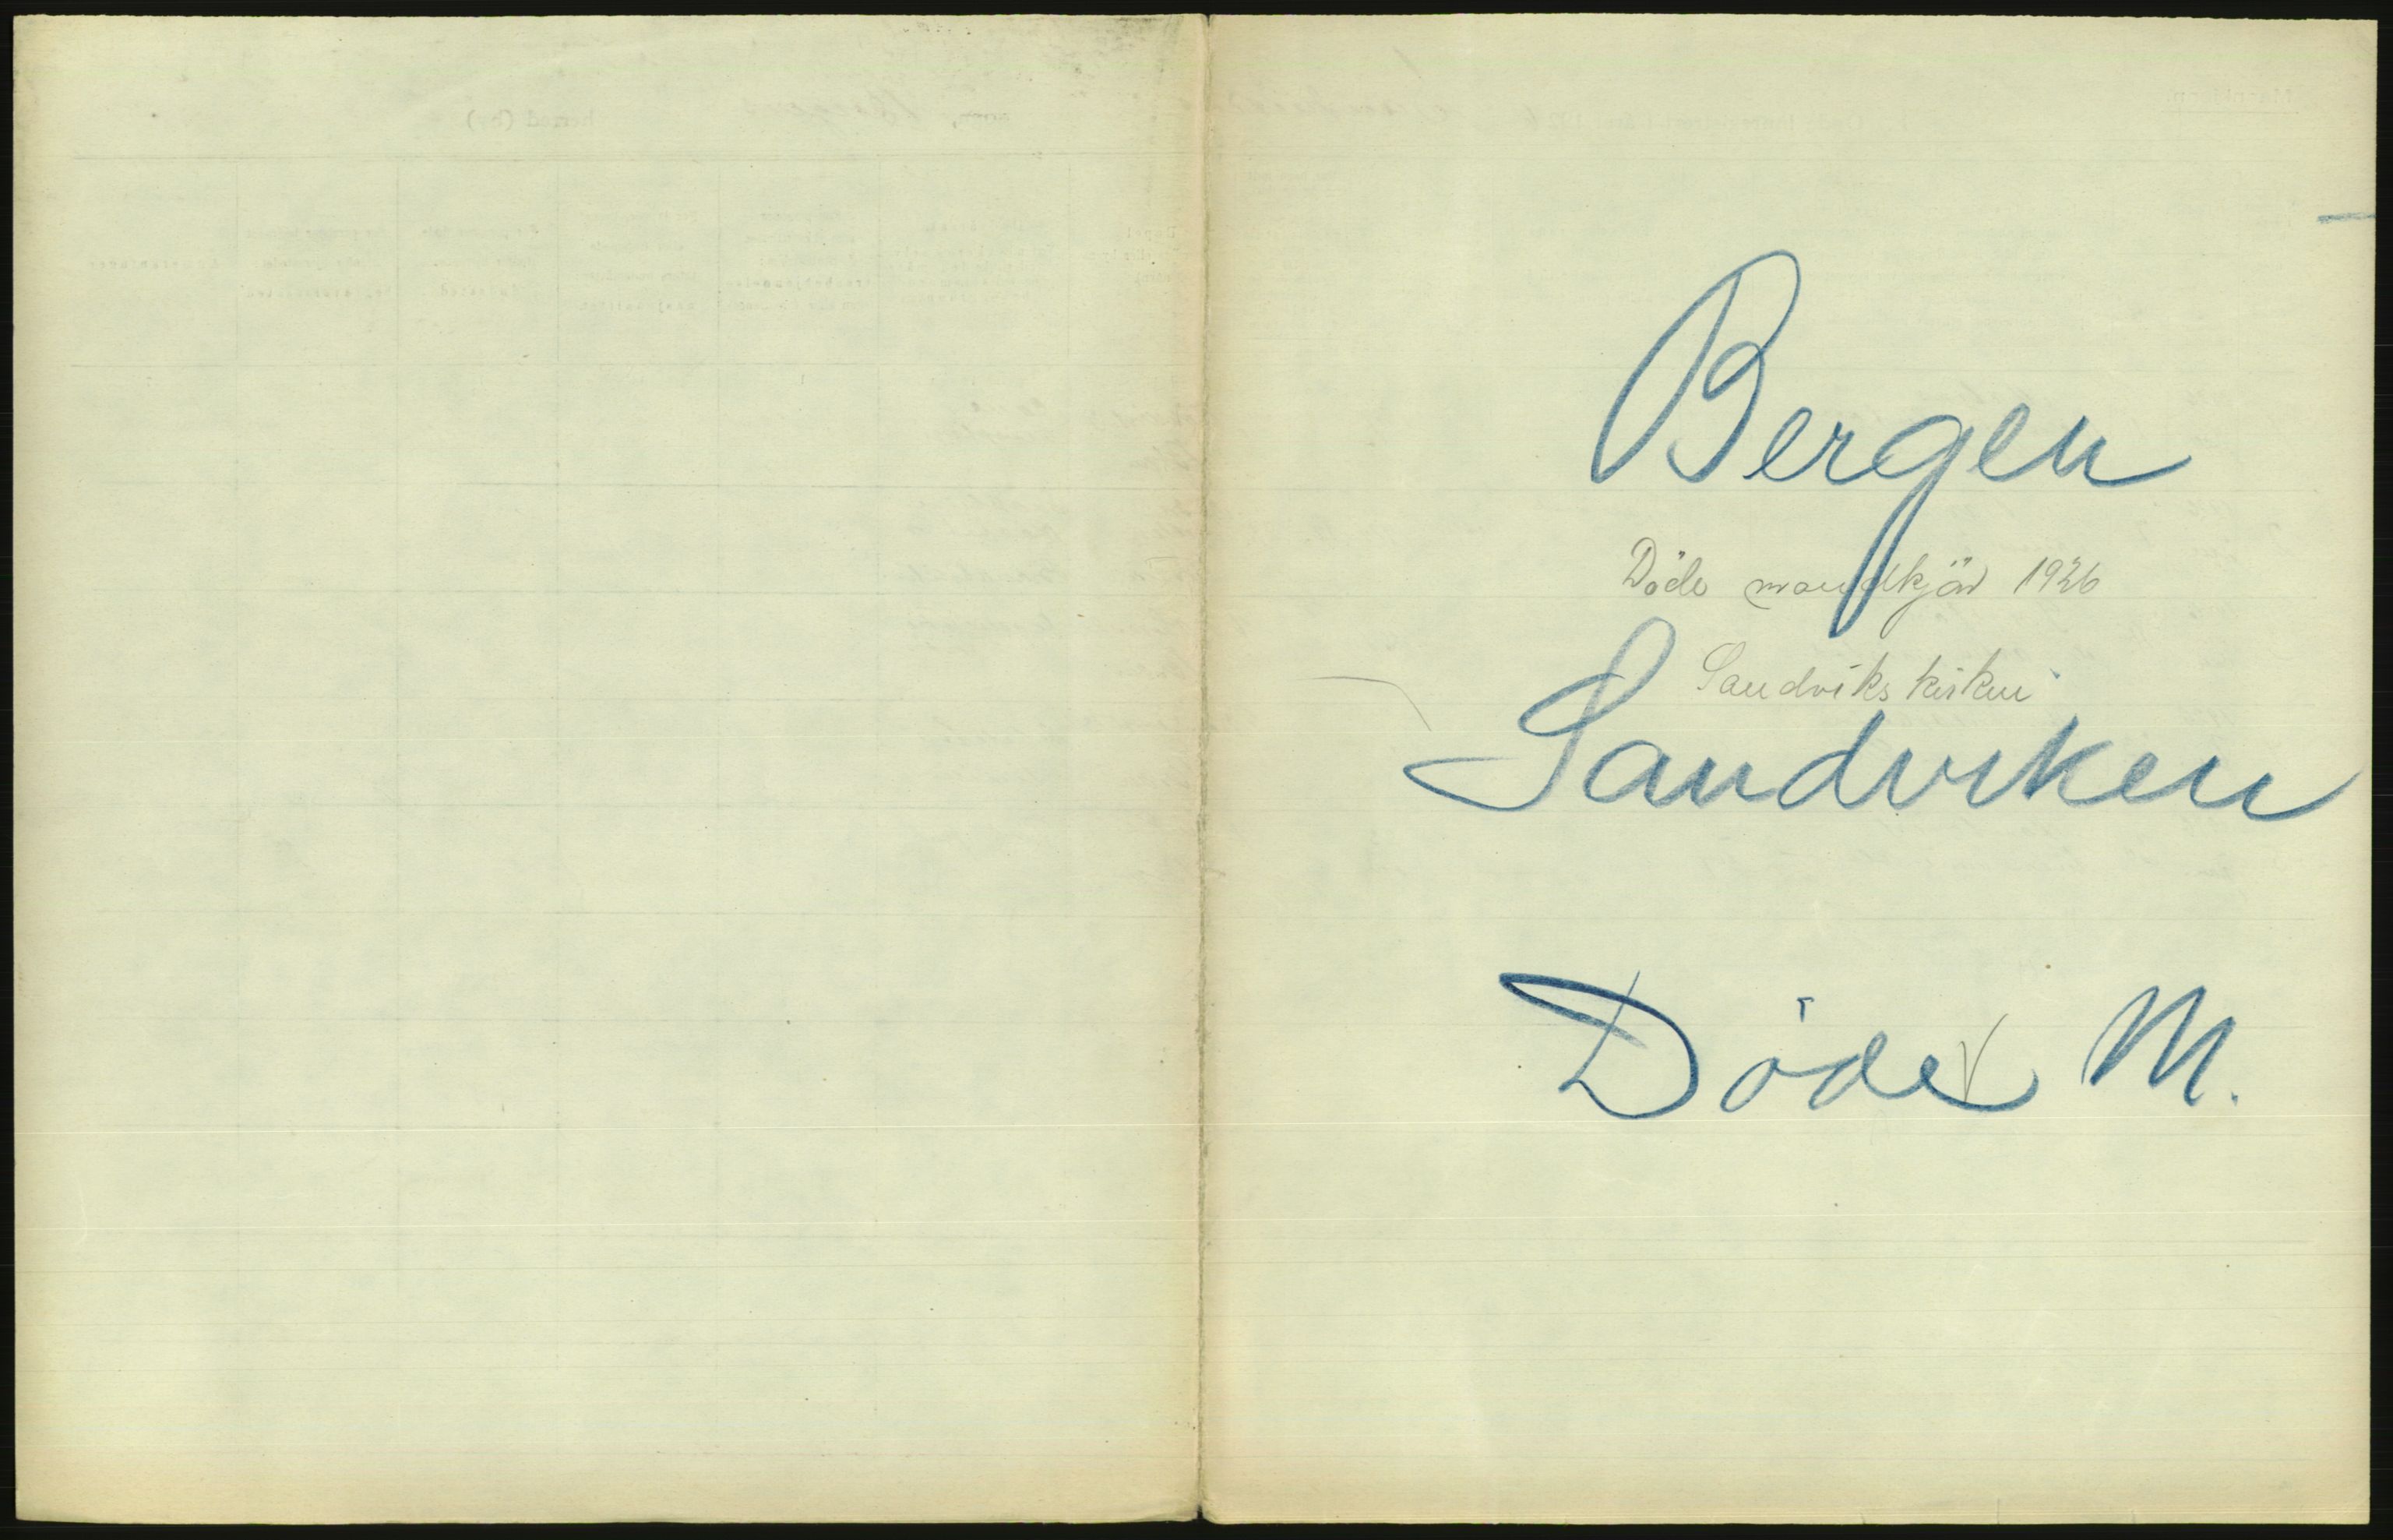 Bergen
Döde mandkjön 1926
Sandviks kirken
Sandviken
Döde M.